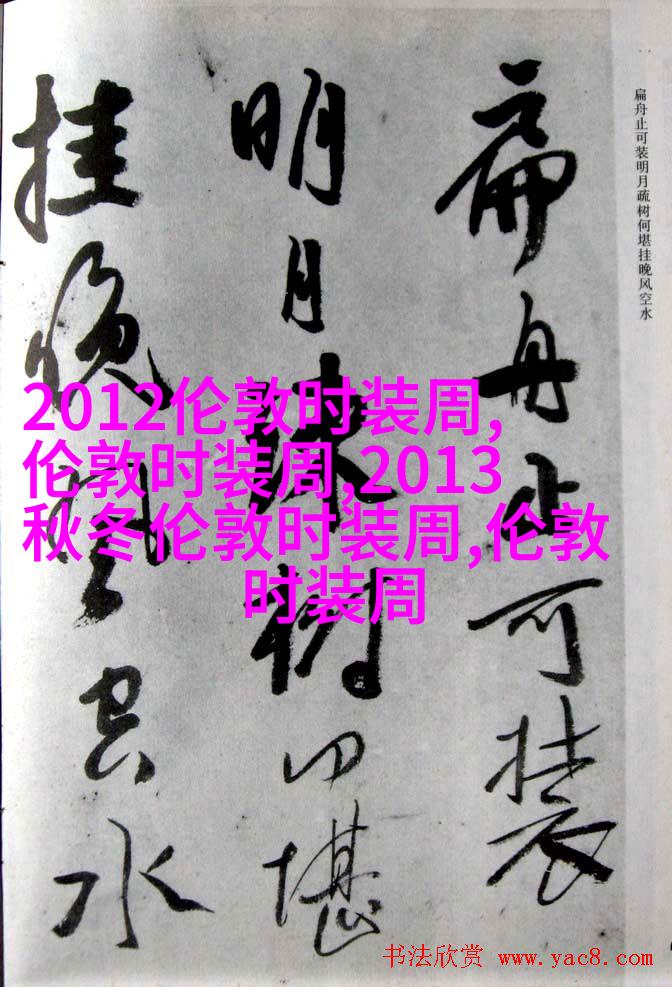 扁舟止可装
明月疏树何堪
挂晚风空水
扁舟止可装明月疏树何堪挂晚风空水
2012伦敦时装周,
伦敦时装周,2013
秋冬伦敦时装周,伦敦
时装周
书法欣赏 www.yac8.com